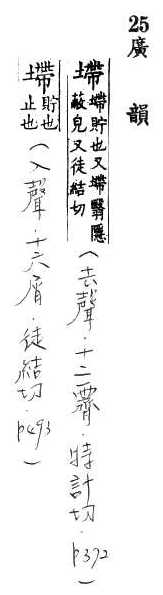 25廣韻
墆墆貯也又墆翳隱蔽皃又徒結切（去聲．十二霽．特計切．p372）
墆貯也止也（入聲．十六屑．徒結切．p493）